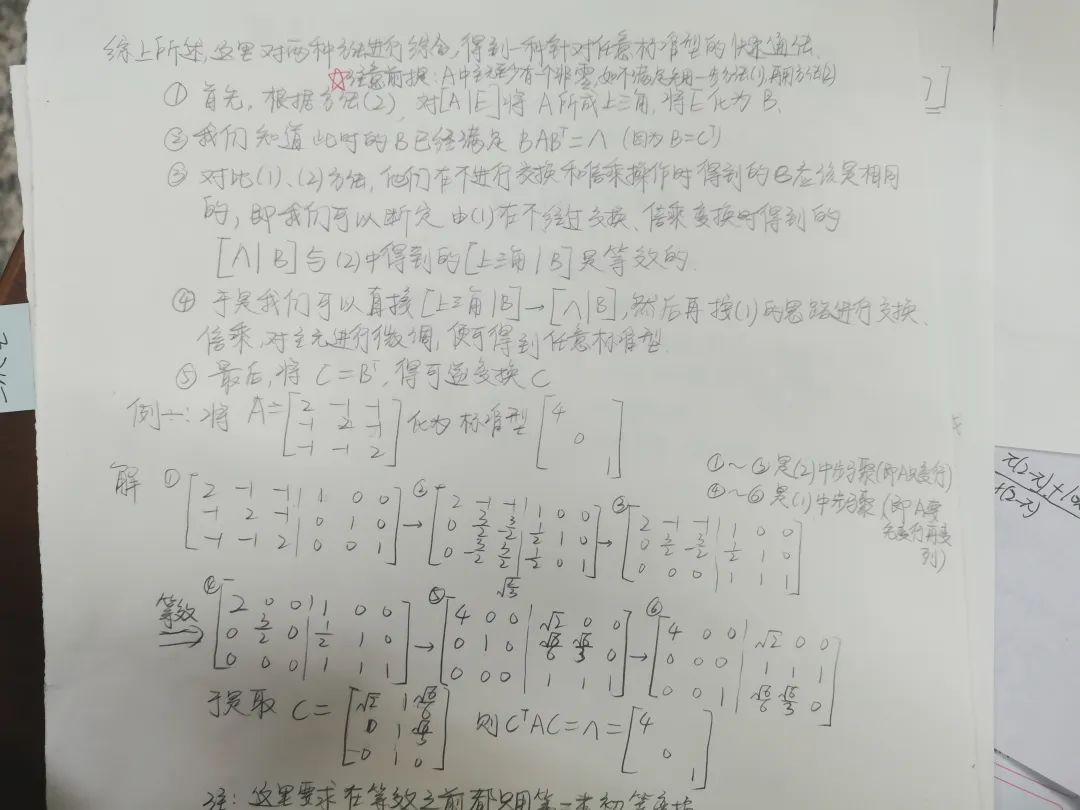 综上所述,这里对两种方法进行综合,得到一种针对任意标准型的快速通法.
☆注意前提:A中主元至少有一个非零,如不满足先用一步方法(1),再用方法(2)
① 首先,根据方法(2),对[A|E]将A所成上三角,将E化为B.
② 我们知道此时的B已经满足 BABᵀ=Λ (因为B=Cᵀ)
③ 对比(1)、(2)方法,他们在不进行交换和倍乘操作时得到的B应该是相同
的,即我们可以断定由(1)在不经过交换、倍乘变换时得到的
[Λ|B]与(2)中得到的[上三角|B]是等效的.
④ 于是我们可以直接[上三角|B]→[Λ|B],然后再按(1)的思路进行交换、
倍乘,对主元进行微调,便可得到任意标准型.
⑤ 最后,将 C=Bᵀ,得可逆变换C
例一:将 A=[2 -1 -1; -1 2 -1; -1 -1 2] 化为标准型 [4 0 1]
①~③是(2)中步骤(即A只变行)
④~⑥是(1)中步骤(即A要
先变行再变
列)
解 ① [2 -1 -1 | 1 0 0; -1 2 -1 | 0 1 0; -1 -1 2 | 0 0 1] →② [2 -1 -1 | 1 0 0; 0 3/2 -3/2 | 1/2 1 0; 0 -3/2 3/2 | 1/2 0 1] →③ [2 -1 -1 | 1 0 0; 0 3/2 -3/2 | 1/2 1 0; 0 0 0 | 1 1 1]
等效⇒ ④ [2 0 0 | 1 0 0; 0 3/2 0 | 1/2 1 0; 0 0 0 | 1 1 1] →⑤ [4 0 0 | √2 0 0; 0 1 0 | √6/6 √6/3 0; 0 0 0 | 1 1 1] →⑥ [4 0 0 | √2 0 0; 0 0 0 | 1 1 1; 0 0 1 | √6/6 √6/3 0]
于是取 C=[√2 1 √6/6; 0 1 √6/3; 0 1 0] 则CᵀAC=Λ=[4 0 1]
注:这里要求在等效之前都只用第一类初等变换